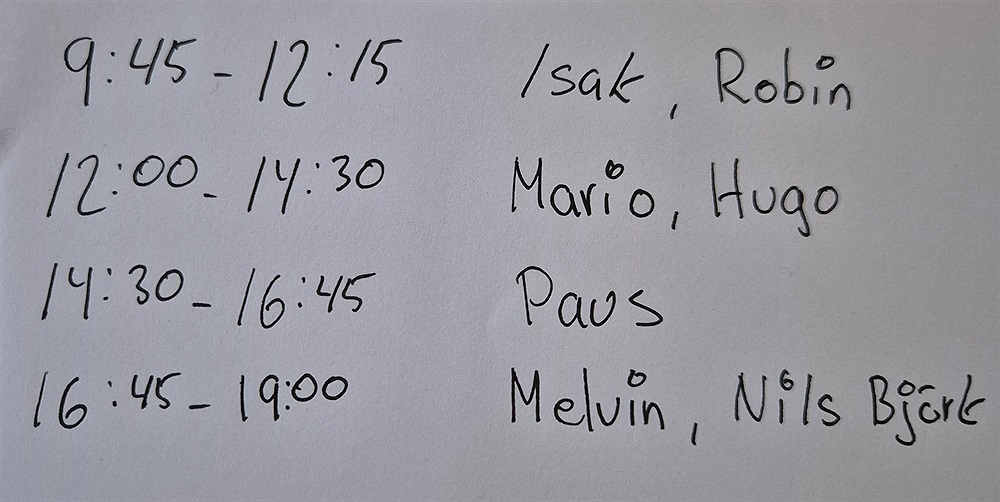 9:45 - 12:15 Isak, Robin
12:00 - 14:30 Mario, Hugo
14:30 - 16:45 Paus
16:45 - 19:00 Melvin, Nils Björk